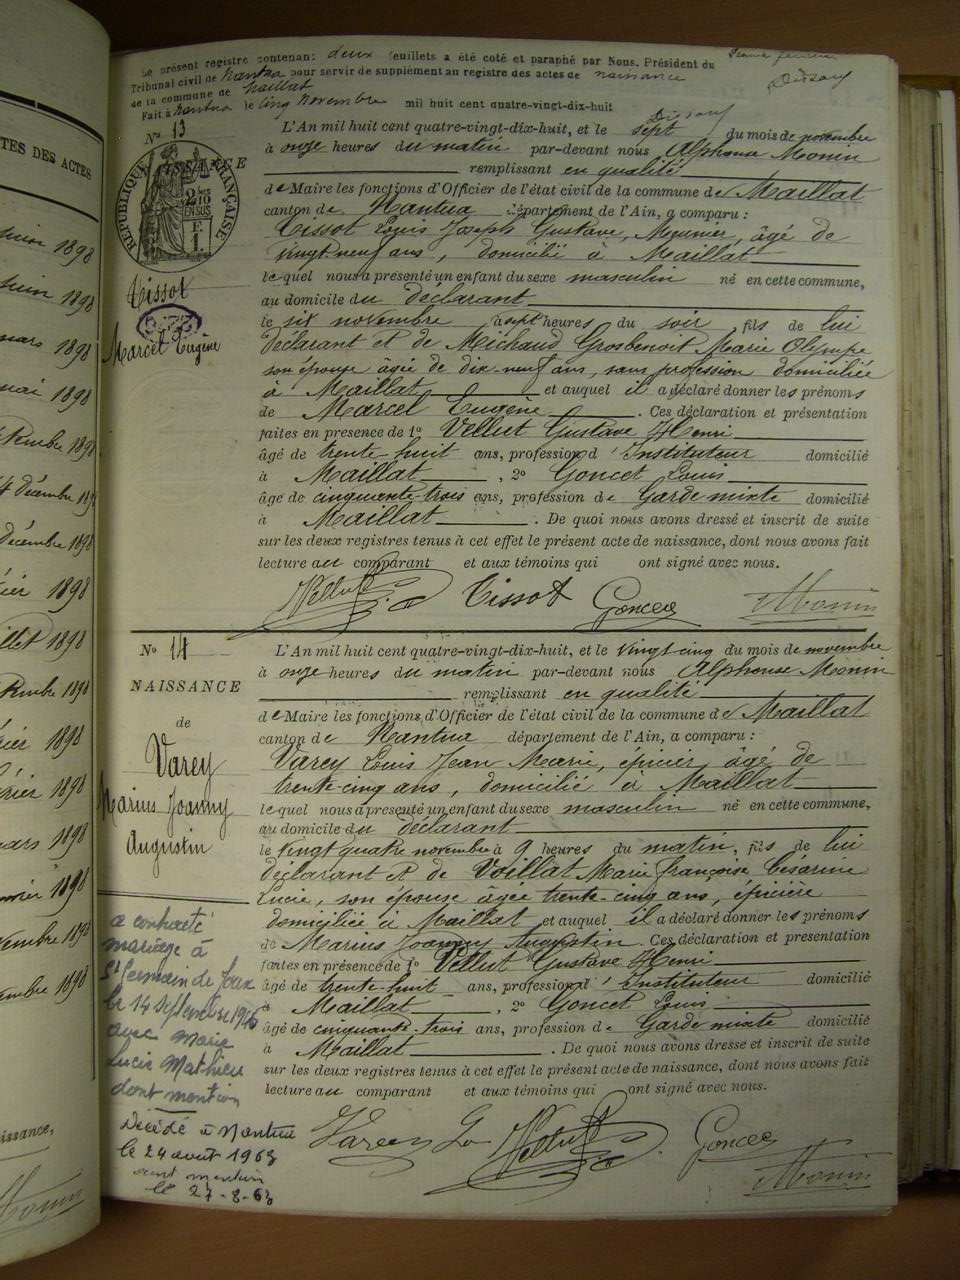 Le présent registre contenant deux feuillets a été coté et paraphé par Nous, Président du
Tribunal civil de Nantua pour servir de supplément au registre des actes de naissance
de la commune de Maillat
Fait à Nantua le cinq novembre mil huit cent quatre-vingt-dix-huit
TES DES ACTES
No 13
NAISSANCE
RÉPUBLIQUE FRANÇAISE
2/10 EN SUS
F. 1.
Tissot
Marcel Eugène
L'An mil huit cent quatre-vingt-dix-huit, et le sept du mois de novembre
à onze heures du matin par-devant nous Alphonse Monin
remplissant en qualité
de Maire les fonctions d'Officier de l'état civil de la commune de Maillat
canton de Nantua département de l'Ain, a comparu :
Tissot Louis Joseph Gustave, Meunier, âgé de
vingt neuf ans, domicilié à Maillat
lequel nous a présenté un enfant du sexe masculin né en cette commune,
au domicile du déclarant
le six novembre à sept heures du soir fils de lui
déclarant et de Michaud Grosbenoit Marie Olympe
son épouse âgée de dix-neuf ans, sans profession domiciliée
à Maillat et auquel il a déclaré donner les prénoms
de Marcel Eugène. Ces déclaration et présentation
faites en présence de 1o Vellut Gustave Henri
âgé de trente-huit ans, profession d'Instituteur domicilié
à Maillat, 2o Goncet Louis
âgé de cinquante-trois ans, profession de Garde mixte domicilié
à Maillat. De quoi nous avons dressé et inscrit de suite
sur les deux registres tenus à cet effet le présent acte de naissance, dont nous avons fait
lecture au comparant et aux témoins qui ont signé avec nous.
Vellut Tissot Goncet Monin
No 14
NAISSANCE
de
Varey
Marius Joanny
Augustin
L'An mil huit cent quatre-vingt-dix-huit, et le vingt cinq du mois de novembre
à onze heures du matin par-devant nous Alphonse Monin
remplissant en qualité
de Maire les fonctions d'Officier de l'état civil de la commune de Maillat
canton de Nantua département de l'Ain, a comparu :
Varey Louis Jean Marie, épicier, âgé de
trente-cinq ans, domicilié à Maillat
lequel nous a présenté un enfant du sexe masculin né en cette commune,
au domicile du déclarant
le vingt quatre novembre à 9 heures du matin, fils de lui
déclarant et de Voillat Marie Françoise Césarine
Lucie, son épouse âgée trente-cinq ans, épicière
domiciliée à Maillat et auquel il a déclaré donner les prénoms
de Marius Joanny Augustin. Ces déclaration et présentation
faites en présence de 1o Vellut Gustave Henri
âgé de trente-huit ans, profession d'Instituteur domicilié
à Maillat, 2o Goncet Louis
âgé de cinquante-trois ans, profession de Garde mixte domicilié
à Maillat. De quoi nous avons dressé et inscrit de suite
sur les deux registres tenus à cet effet le présent acte de naissance, dont nous avons fait
lecture au comparant et aux témoins qui ont signé avec nous.
Varey Vellut Goncet Monin
a contracté
mariage à
St Germain de Joux
le 14 septembre
avec Marie
Lucie Mathieu
dont mention
Décédé à Nantua
le 24 août 1963
dont mention
le 27-8-63